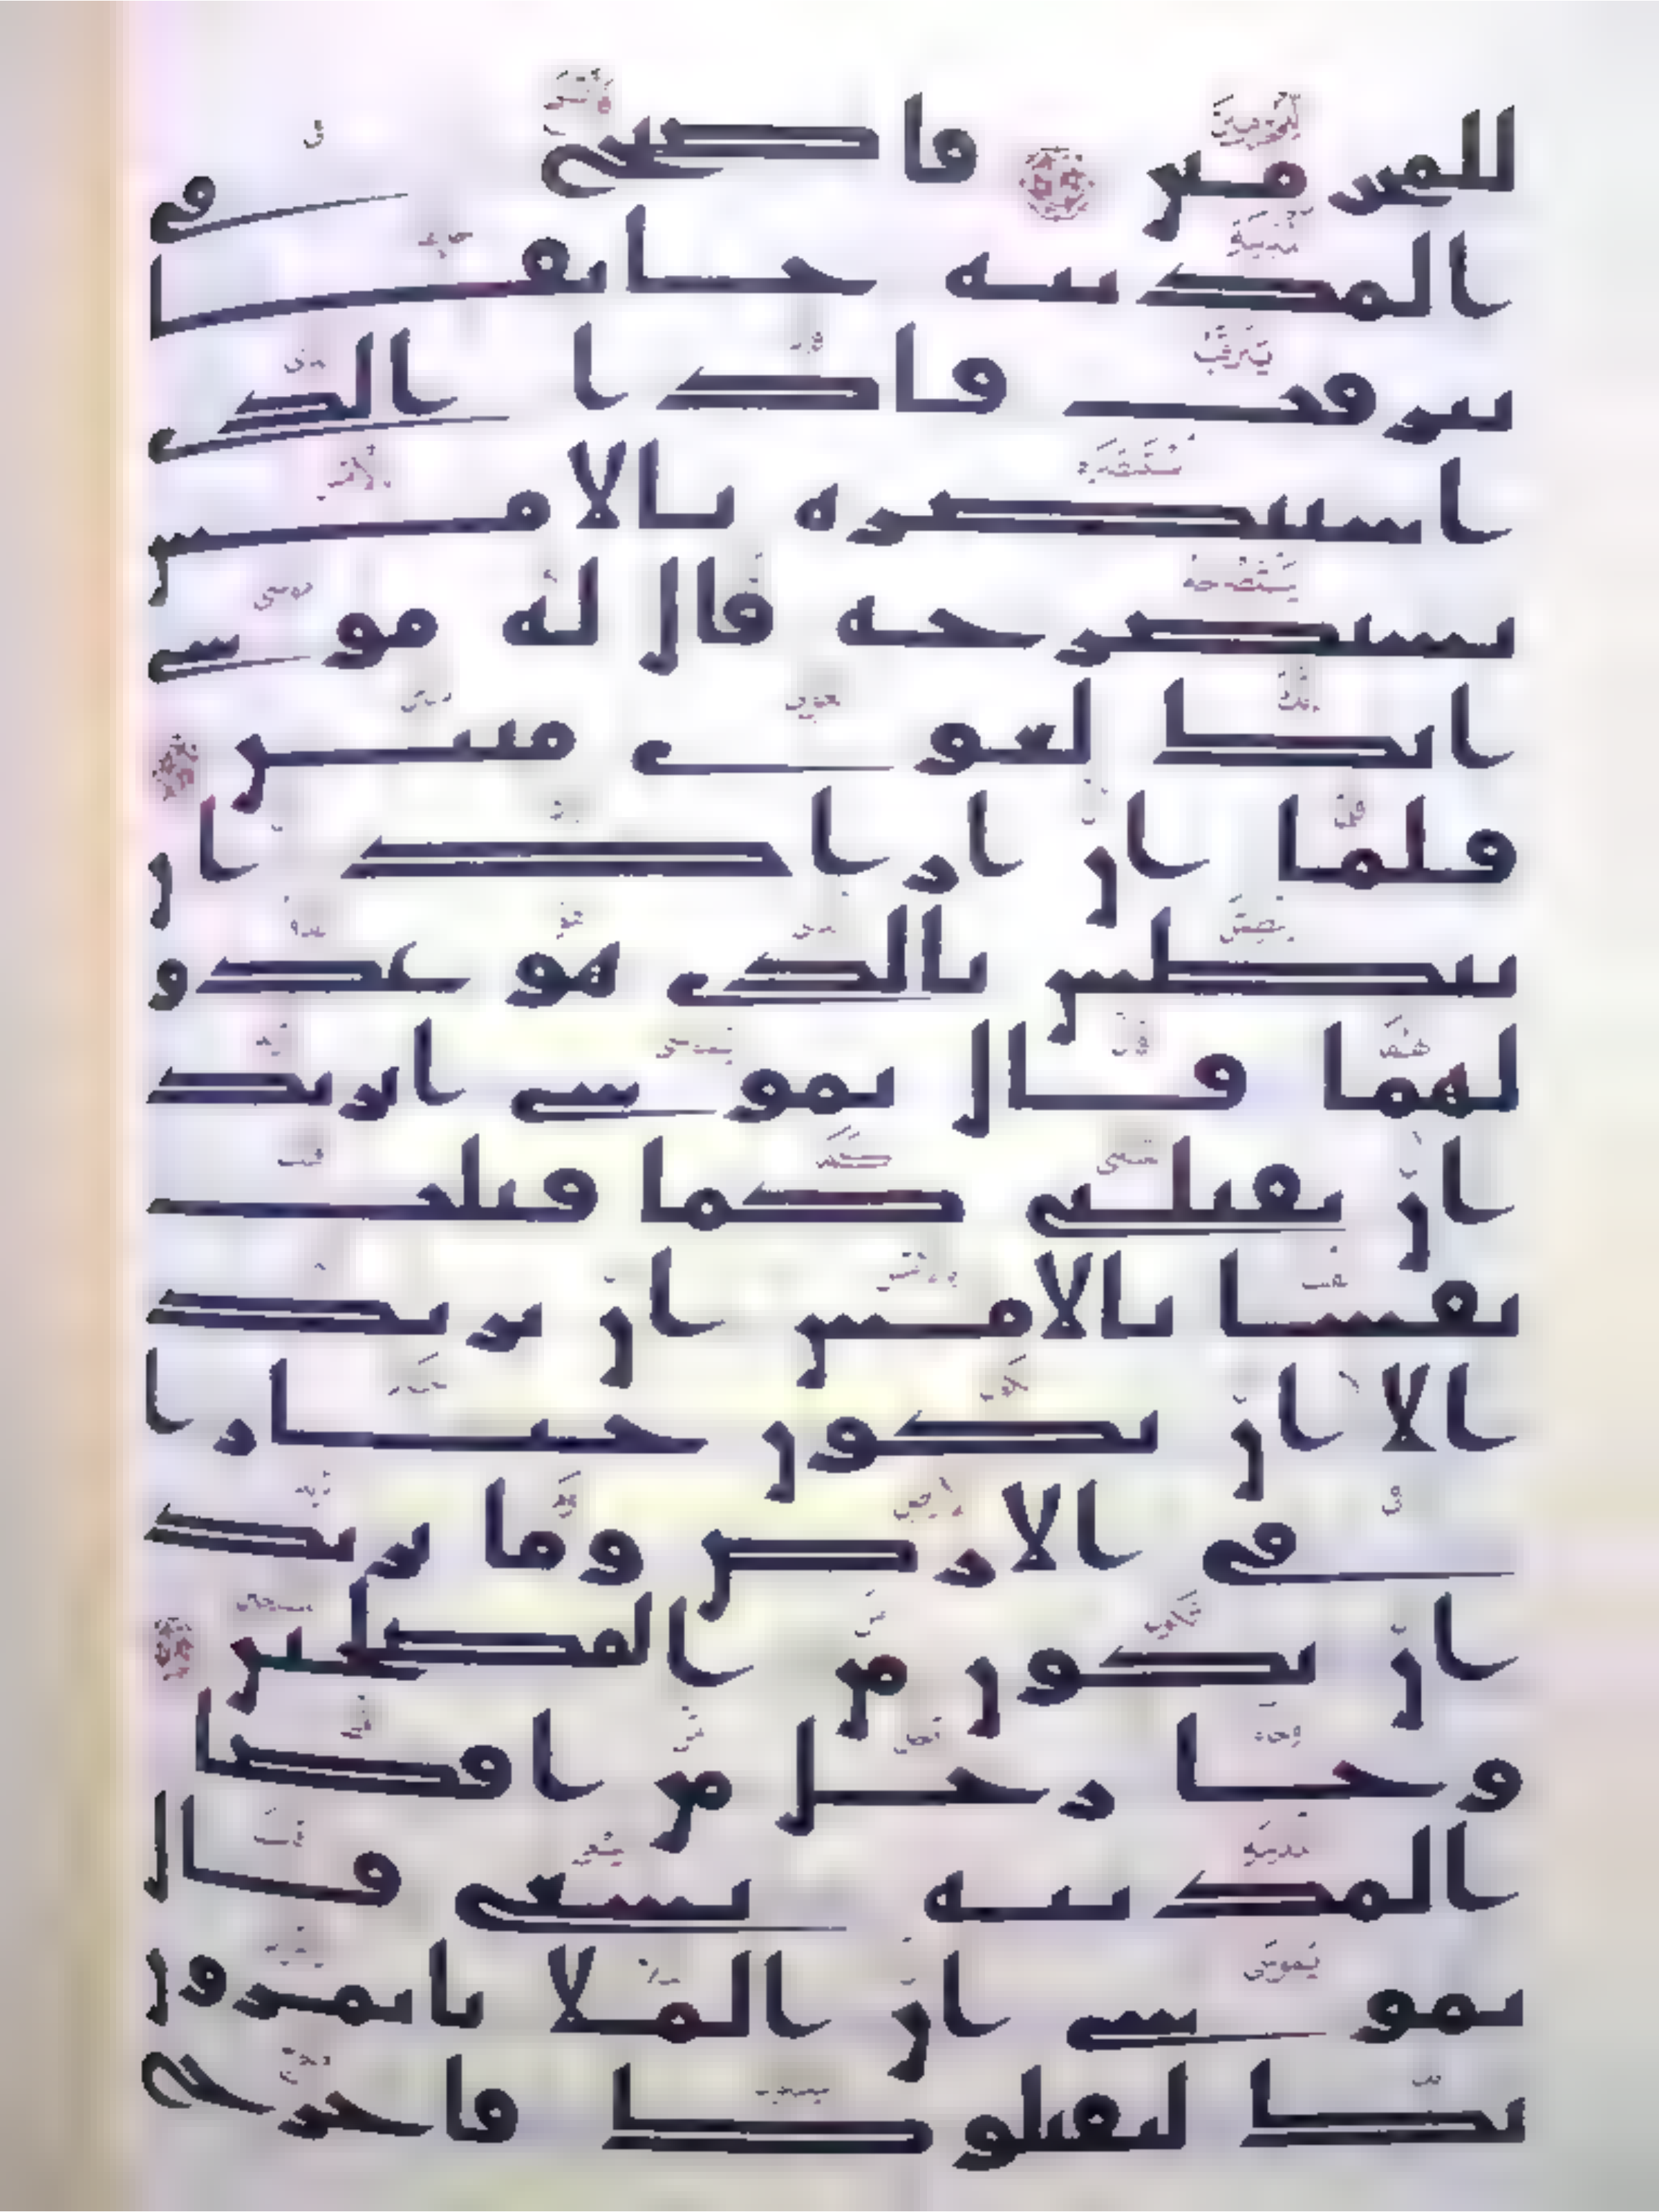 للمجرمين فاصبح في
المدينة خائفا
يترقب فاذا الذي
استنصره بالامس
يستصرخه قال له موسى
انك لغوي مبين
فلما ان اراد ان
يبطش بالذي هو عدو
لهما قال يموسى اتريد
ان تقتلني كما قتلت
نفسا بالامس ان تريد
الا ان تكون جبارا
في الارض وما تريد
ان تكون من المصلحين
وجا رجل من اقصا
المدينة يسعى قال
يموسى ان الملا ياتمرون
بك ليقتلوك فاخرج